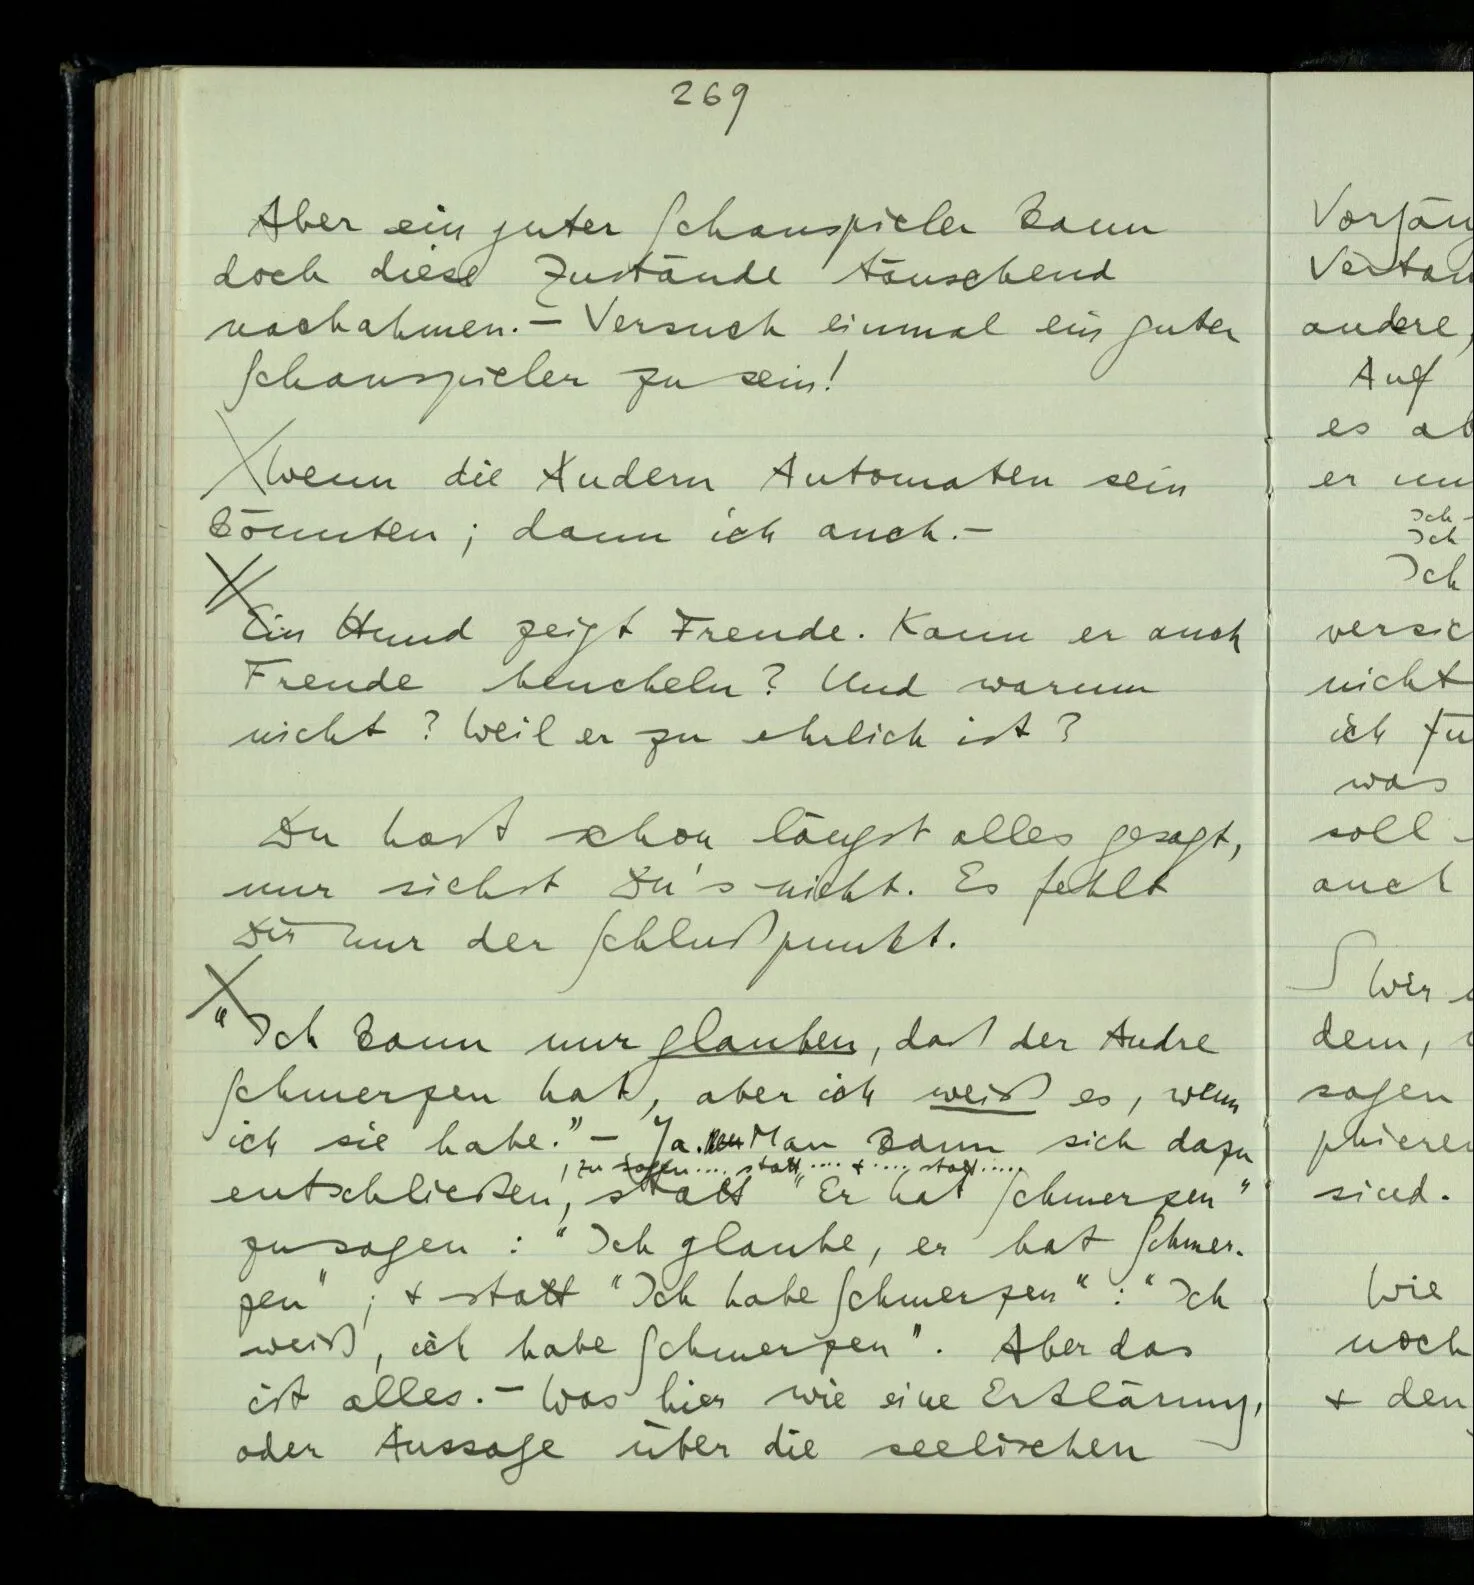 269
Aber ein guter Schauspieler kann
doch diese Zustände täuschend
nachahmen. – Versuch einmal ein guter
Schauspieler zu sein!
Wenn die Andern Automaten sein
könnten; dann ich auch. –
Ein Hund zeigt Freude. Kann er auch
Freude heucheln? Und warum
nicht? Weil er zu ehrlich ist?
Du hast schon längst alles gesagt,
nur siehst Du's nicht. Es fehlt
Dir nur der Schlußpunkt.
“Ich kann nur glauben, daß der Andre
Schmerzen hat, aber ich weiß es, wenn
ich sie habe.” – Ja. Man kann sich dazu
, zu sagen .... statt .... + .... statt .....
entschließen, statt “Er hat Schmerzen”
zu sagen : “Ich glaube, er hat Schmer-
zen” ; + statt “Ich habe Schmerzen” : “Ich
weiß, ich habe Schmerzen”. Aber das
ist alles. – Was hier wie eine Erklärung,
oder Aussage über die seelischen
andere,
Auf
es
er
Ich
Ich
Ich
nicht
ich
was
soll
auch
Wir
dem,
sagen
sind.
Wie
noch
+ den